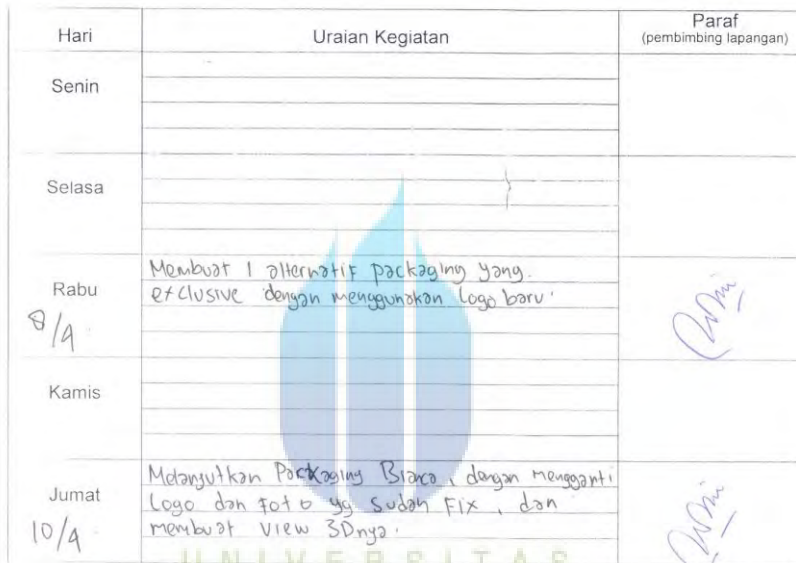 Hari Uraian Kegiatan Paraf
(pembimbing lapangan)
Senin
Selasa
Rabu
8/4
Membuat 1 alternatif packaging yang
exclusive dengan menggunakan logo baru.
Kamis
Jumat
10/4
Melanjutkan Packaging Bianca, dengan mengganti
Logo dan foto yg sudah Fix, dan
membuat view 3Dnya.
UNIVERSITAS